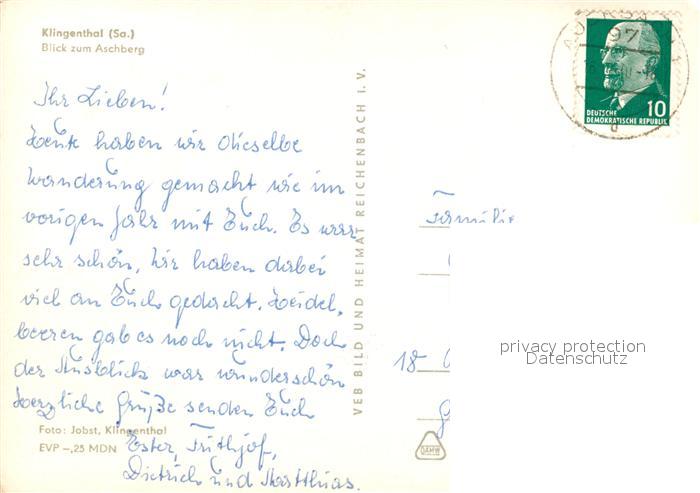 Klingenthal (Sa.)
Blick zum Aschberg
Ihr Lieben!
Heute haben wir dieselbe
Wanderung gemacht wie im
vorigen Jahr mit Euch. Es war
sehr schön, wir haben dabei
viel an Euch gedacht. Heidel-
beeren gab es noch nicht. Doch
der Ausblick war wunderschön
Herzliche Grüße senden Euch
Ester, Frithjof,
Dietrich und Matthias.
Foto: Jobst, Klingenthal
EVP -,25 MDN
VEB BILD UND HEIMAT REICHENBACH I. V.
97
10
DEUTSCHE
DEMOKRATISCHE REPUBLIK
Familie
18
privacy protection
Datenschutz
DAMW